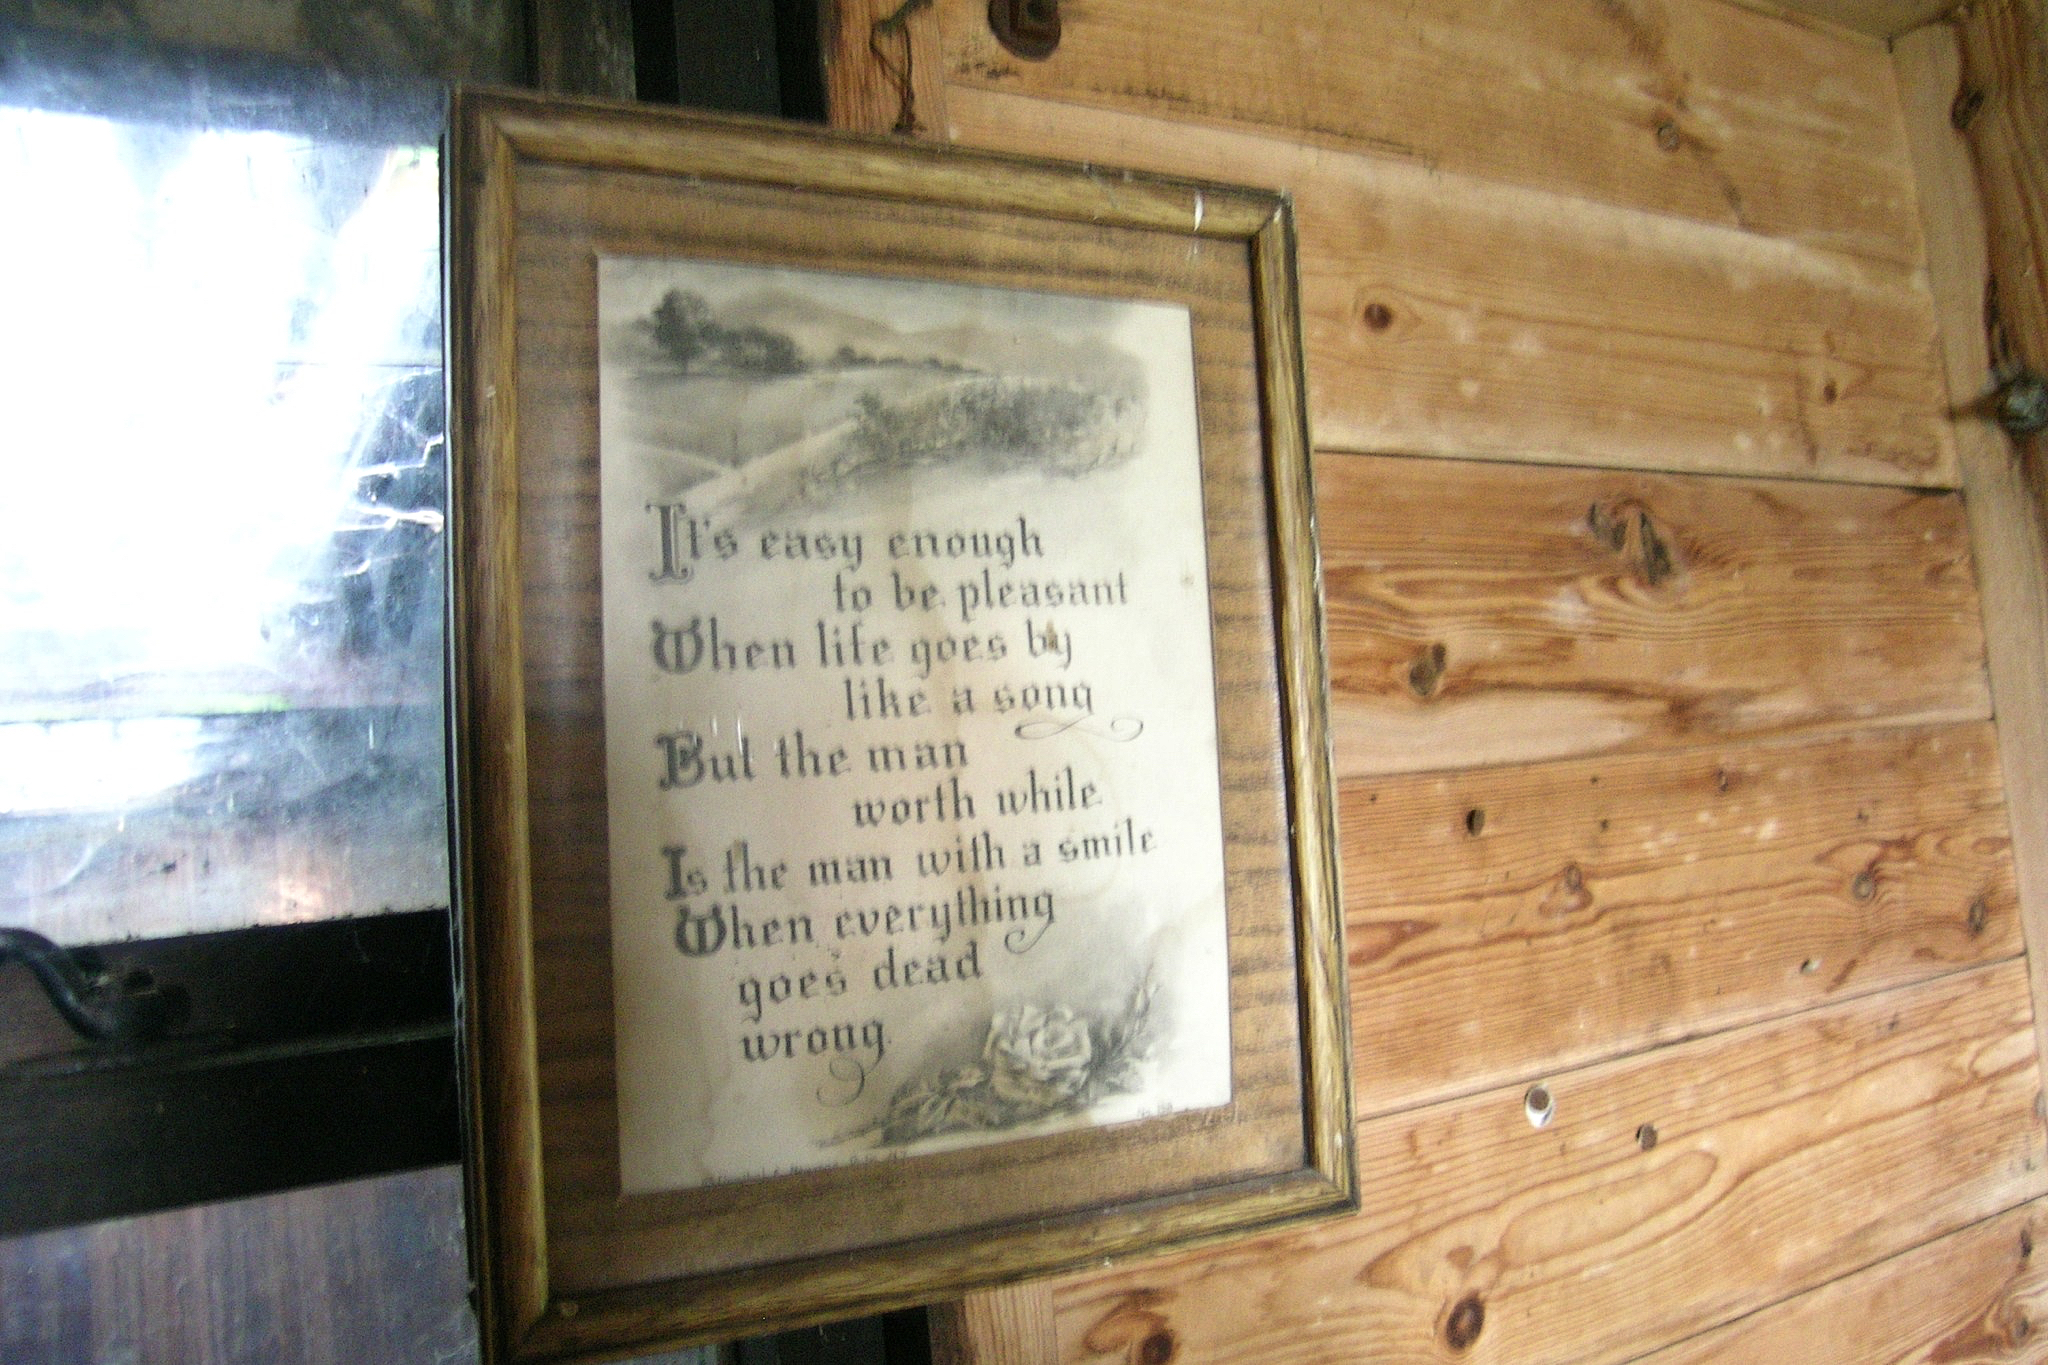 It's easy enough
to be pleasant
When life goes by
like a song
But the man
worth while
Is the man with a smile
When everything
goes dead
wrong.